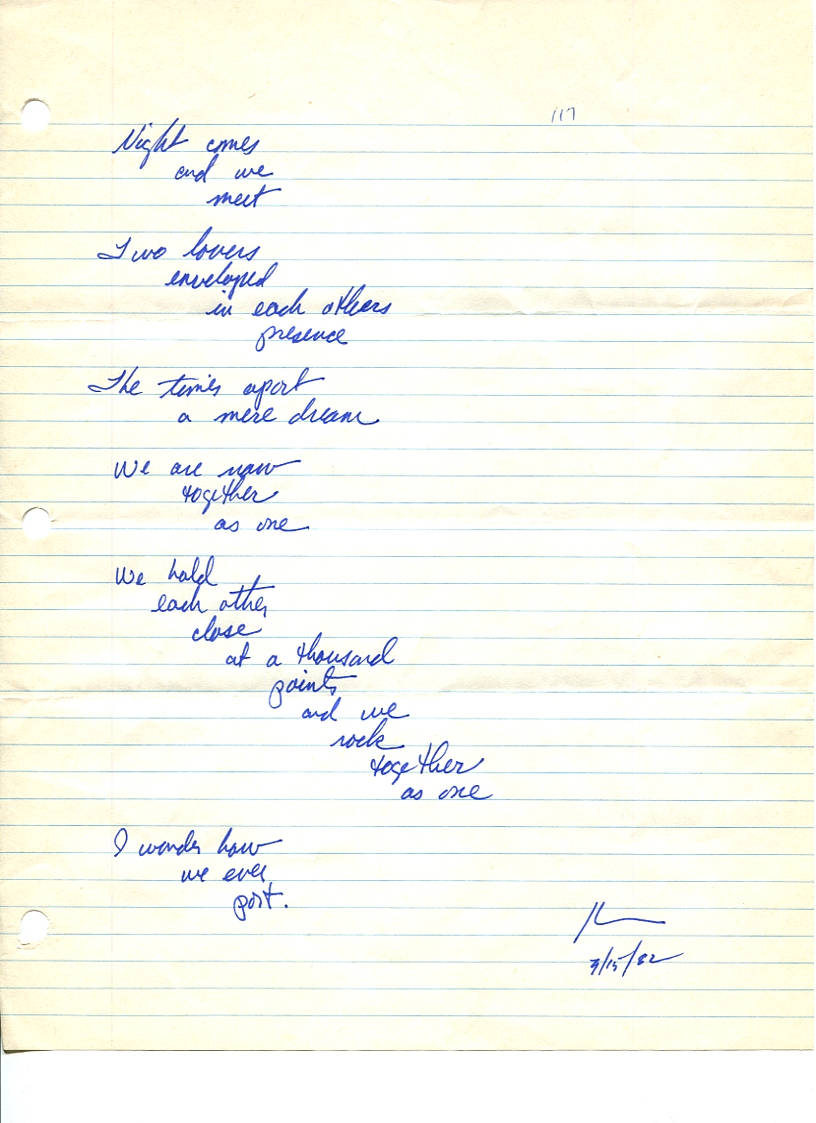 117
Night comes
and we
meet
Two lovers
enveloped
in each others
presence
The times apart
a mere dream
We are now
together
as one
We hold
each other
close
at a thousand
points
and we
rock
together
as one
I wonder how
we ever
part.
3/15/82